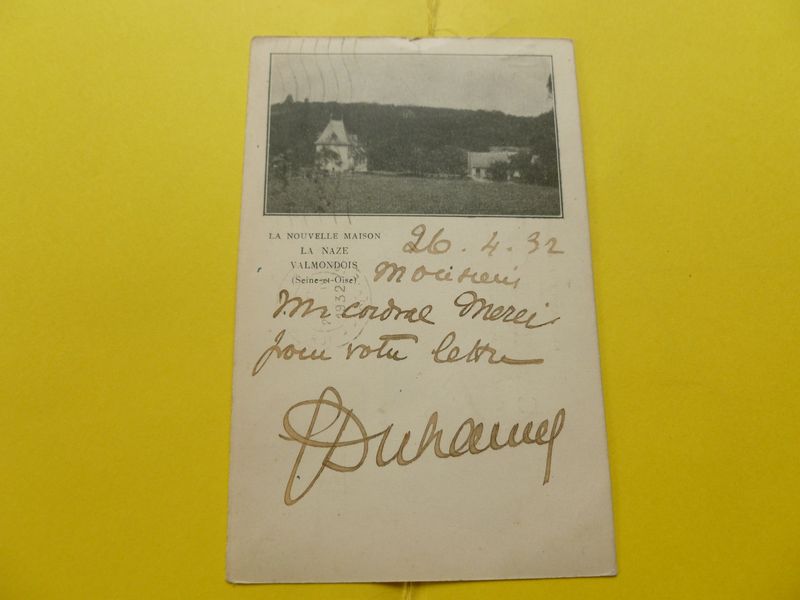 LA NOUVELLE MAISON
LA NAZE
VALMONDOIS
(Seine-et-Oise)
26.4.32
Monsieur
cordial Merci
pour votre lettre
Duhamel
1932